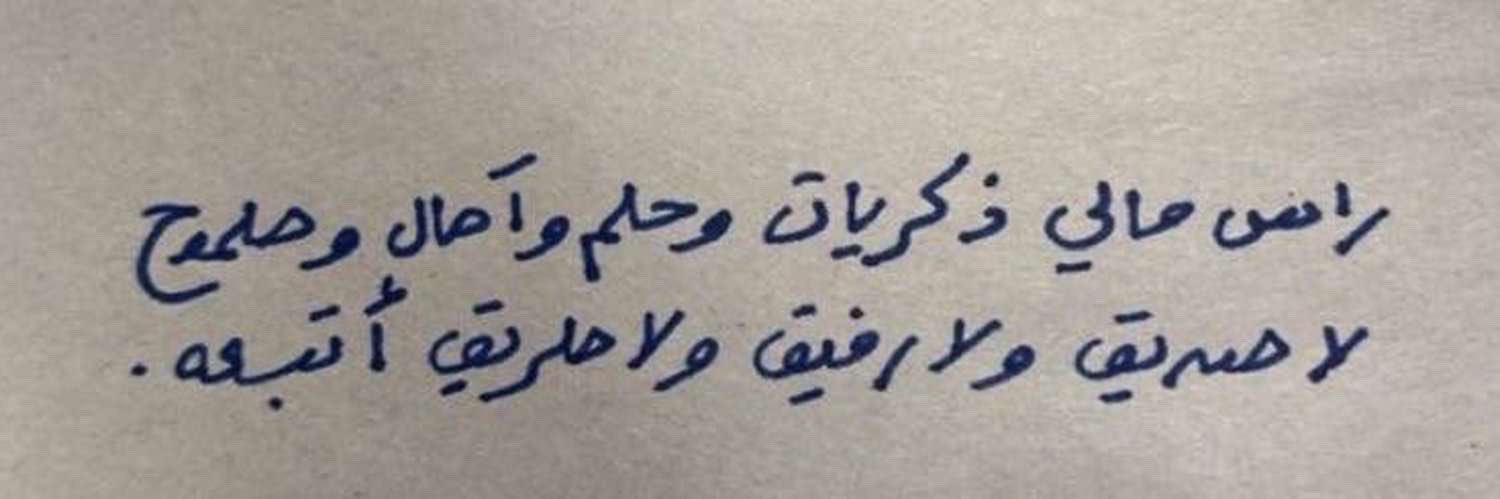 راس مالي ذكريات وحلم وآمال وطموح
لا صديق ولا رفيق ولا طريق أتبعه.